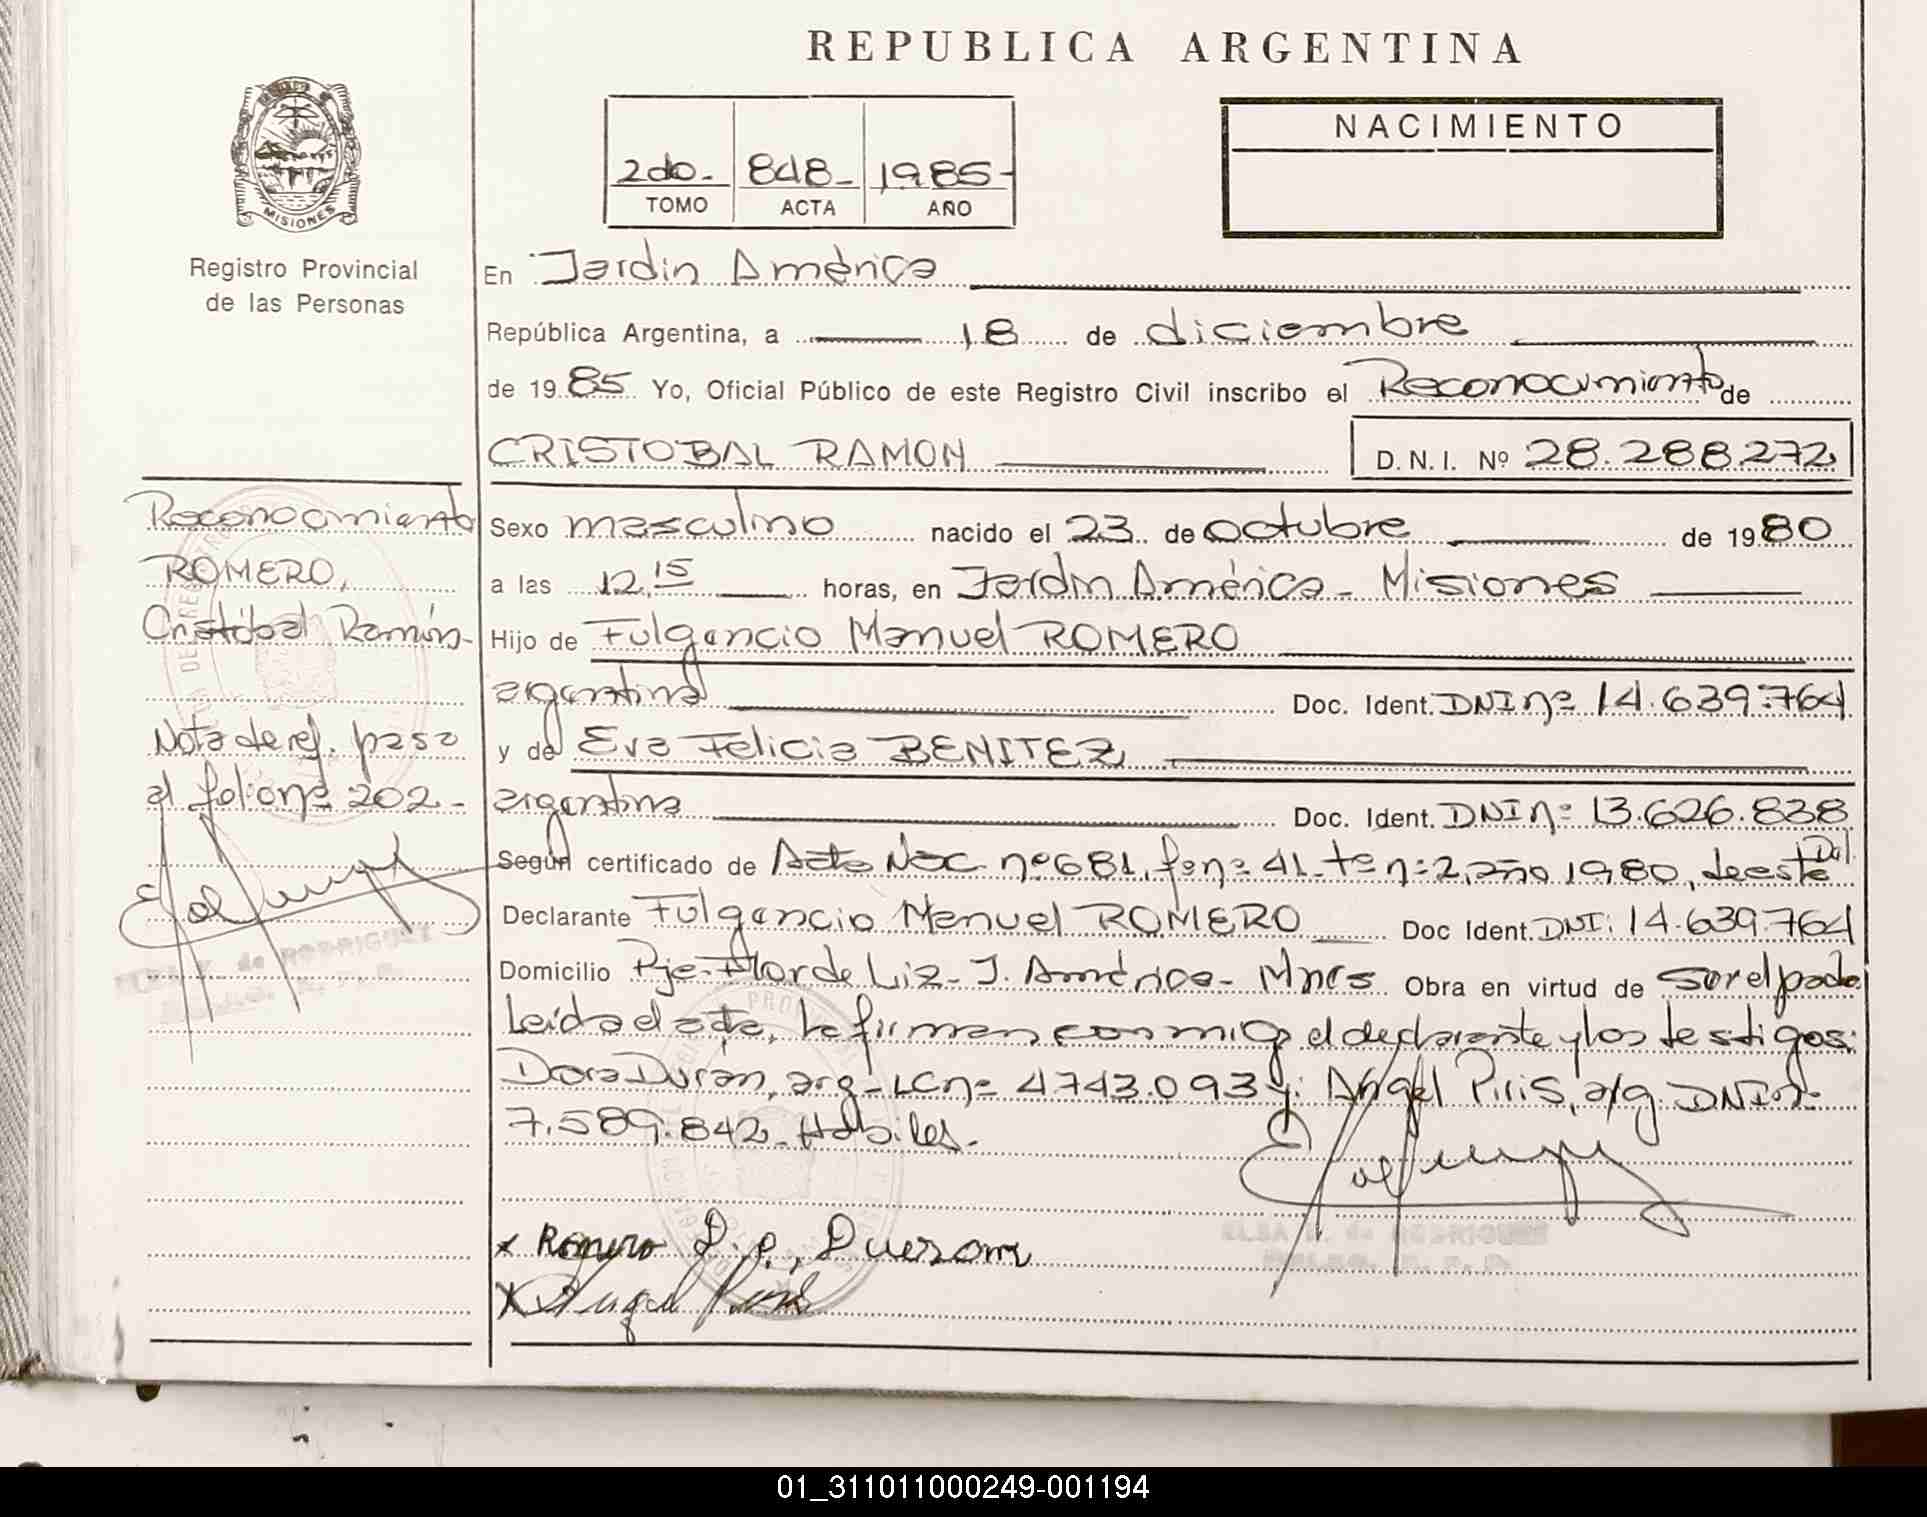 REPUBLICA ARGENTINA
NACIMIENTO
2do. 848 1985
TOMO ACTA AÑO
MISIONES
Registro Provincial
de las Personas
En Jardín América
República Argentina, a 18 de diciembre
de 1985 Yo, Oficial Público de este Registro Civil inscribo el Reconocimiento de
CRISTOBAL RAMON D.N.I. Nº 28.288.272
Reconocimiento
ROMERO,
Cristóbal Ramón-
Nota de ref. pasa
al folio nº 202-
Sexo masculino nacido el 23 de octubre de 1980
a las 12,15 horas, en Jardín América - Misiones
Hijo de Fulgencio Manuel ROMERO
argentina Doc. Ident. DNI nº 14.639.764
y de Eva Felicia BENITEZ
argentina Doc. Ident. DNI nº 13.626.838
Según certificado de Acta Nac nº 681, fº nº 41- tº nº 2, año 1980, de esta Del.
Declarante Fulgencio Manuel ROMERO Doc Ident. DNI: 14.639.764
Domicilio Pje. Flor de Liz - J. América - Mnes Obra en virtud de ser el padre
Leída el acta, la firman conmigo el declarante y los testigos:
Dora Durán, arg - LC nº 4743.093 y: Angel Piris, arg. DNI nº
7.589.842- Hábiles.
x Romero
x Angel Piris
ELSA de RODRIGUEZ
01_311011000249-001194